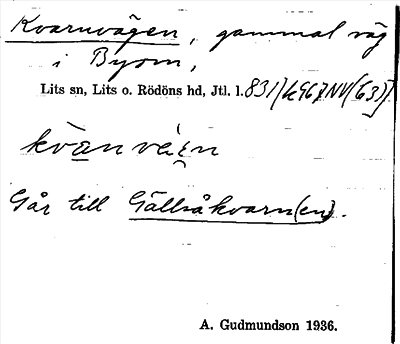 Kvarnvägen, gammal väg
i Byom,
Lits sn, Lits o. Rödöns hd, Jtl. l. 831
kvànvèi̯en
Går till Gällsåkvarn(en).
A. Gudmundson 1936.